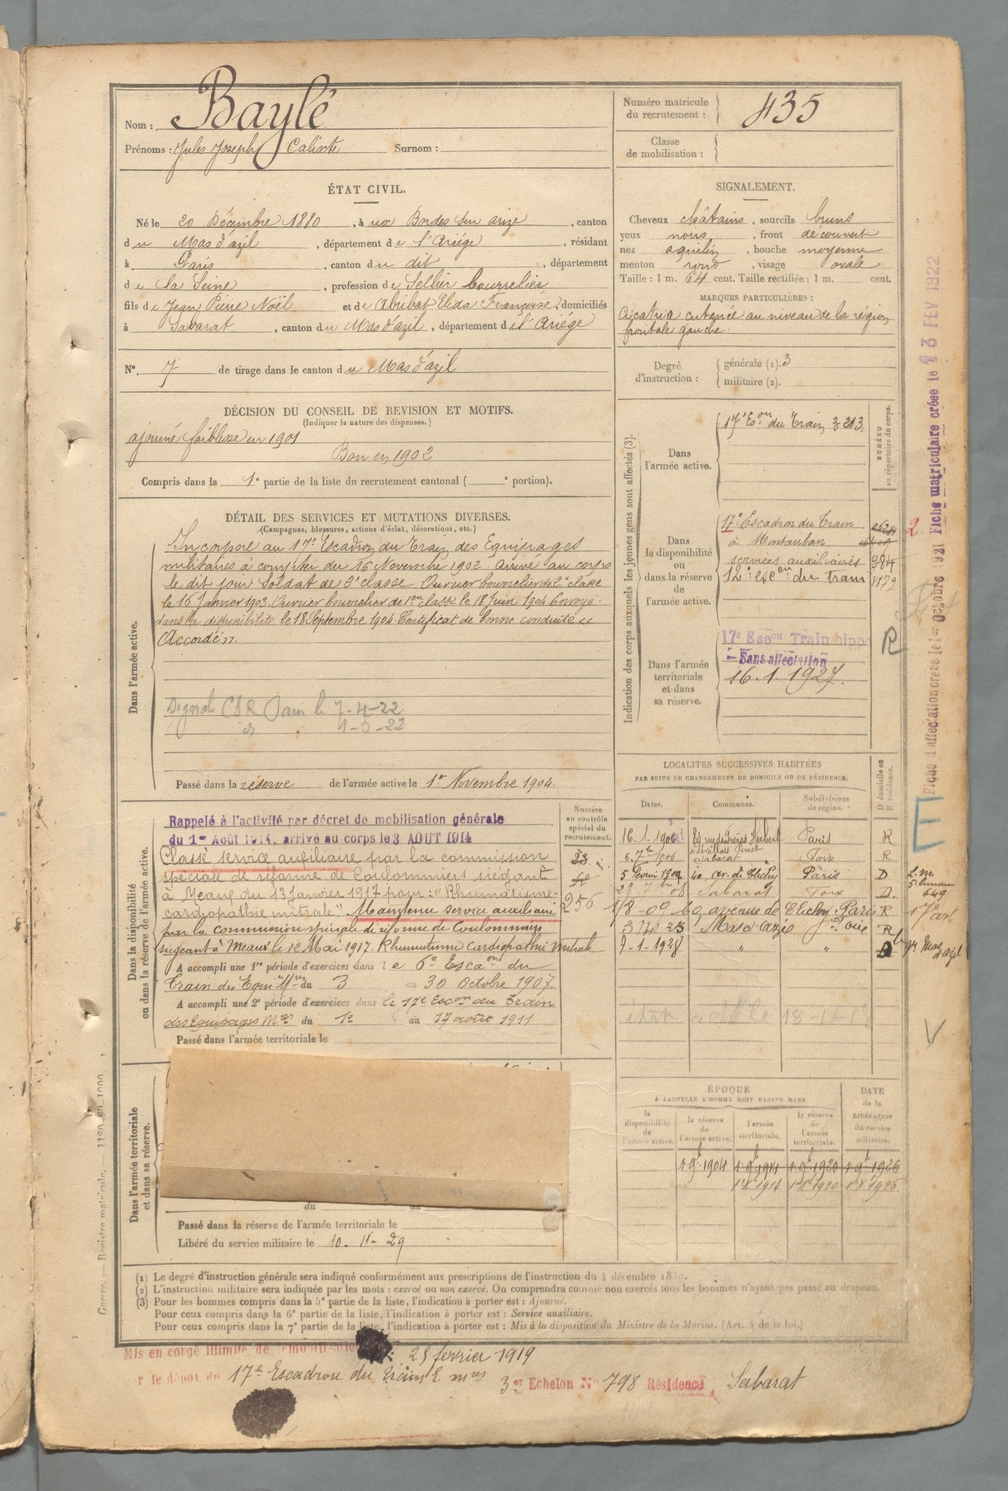 Nom : Baylé
Prénoms : Jules Joseph Calixte Surnom :
Numéro matricule du recrutement : 435
Classe de mobilisation :
ÉTAT CIVIL.
Né le 20 Décembre 1880, à ux Bordes sur arize, canton
du Mas d'azil, département de l'Ariége, résidant
à Paris, canton du dit, département
de la Seine, profession de Sellier bourrelier
fils de Jean Pierre Noël et de Abribat Elida Françoise, domiciliés
à Sabarat, canton du Mas d'azil, département de l'Ariége
N° 7 de tirage dans le canton du Mas d'azil
SIGNALEMENT.
Cheveux châtains, sourcils bruns
yeux , front découvert
nez aquilin, bouche moyenne
menton rond, visage ovale
Taille : 1 m. 64 cent. Taille rectifiée : 1 m. cent.
MARQUES PARTICULIÈRES :
Cicatrice cutanée au niveau de la région
frontale gauche.
Degré d'instruction : générale (1). 3
militaire (2).
DÉCISION DU CONSEIL DE REVISION ET MOTIFS.
(Indiquer la nature des dispenses.)
ajourné faiblesse en 1901
Bon en 1902
Compris dans la 1e partie de la liste du recrutement cantonal ( e portion).
DÉTAIL DES SERVICES ET MUTATIONS DIVERSES.
(Campagnes, blessures, actions d'éclat, décorations, etc.)
Dans l'armée active.
Incorporé au 17e Escadron du Train des Equipages
militaires à compter du 16 Novembre 1902. Arrivé au corps
le dit jour Soldat de 2e classe. Ouvrier bourrelier de 2e classe
le 16 Janvier 1903. Ouvrier bourrelier de 1ère classe le 18 Juin 1904. Envoyé
dans la disponibilité le 18 Septembre 1904. Certificat de bonne conduite "
Accordé".
CSR Paris le 7-4-22
Passé dans la réserve de l'armée active le 1er Novembre 1904.
Indication des corps auxquels les jeunes gens sont affectés (3).
NUMÉRO au répertoire du corps.
Dans l'armée active.
17e Eson du Train 3213
Dans la disponibilité ou dans la réserve de l'armée active.
17e Escadron du Train
à Montauban
services auxiliaires 984
12e escon du train
Dans l'armée territoriale et dans sa réserve.
17e Escon Train hippo
- Sans affectation
16.1.1927.
R
Fiche d'affectation créée le 1er Octobre 1921 Fiche matriculaire créée le 13 FEV 1922
Dans la disponibilité ou dans la réserve de l'armée active.
Numéro au contrôle spécial du recrutement.
Rappelé à l'activité par décret de mobilisation générale
du 1er Août 1914, arrivé au corps le 3 AOUT 1914
Classé service auxiliaire par la commission
spéciale de réforme de Coulommiers siégeant
à Meaux du 13 Janvier 1917 pour : "Rhumatisme
cardiopathie mitrale" Maintenu service auxiliaire
par la commission spéciale de réforme de Coulommiers
siégeant à Meaux le 12 Mai 1917. Rhumatisme cardiopathie mitrale
256
A accompli une 1re période d'exercices dans le 6e Escaon du
Train des Equip. Mres du 3 au 30 Octobre 1907.
A accompli une 2e période d'exercices dans le 17e Escon du Train
des Equipages Mres du 1er au 17 aout 1911
Passé dans l'armée territoriale le
LOCALITÉS SUCCESSIVES HABITÉES
PAR SUITE DE CHANGEMENTS DE DOMICILE OU DE RÉSIDENCE.
Dates. Communes. Subdivisions de région. D domicile ou R résidence.
16.1.1905 Paris R
Sabarat Foix R
5 Février Clichy Paris D
Sabarat Foix D.
1/8-09 60, avenue de Clichy Paris R
3 Mas d'azil Foix R
7-1-1928 " "
ÉPOQUE
À LAQUELLE L'HOMME DOIT PASSER DANS
la disponibilité de l'armée active. la réserve de l'armée active. l'armée territoriale. la réserve de l'armée territoriale. DATE de la LIBÉRATION du service militaire.
1 9b 1904 1 9b 1914 1 9b 1920 1 9b 1926
1914 1920 1926
Dans l'armée territoriale et dans sa réserve.
du au
Passé dans la réserve de l'armée territoriale le
Libéré du service militaire le 10-11-29
(1) Le degré d'instruction générale sera indiqué conformément aux prescriptions de l'instruction du 4 décembre
(2) L'instruction militaire sera indiquée par les mots : exercé ou non exercé. On comprendra comme non exercés tous les hommes n'ayant pas passé au drapeau.
(3) Pour les hommes compris dans la 5e partie de la liste, l'indication à porter est : Ajourné.
Pour ceux compris dans la 6e partie de la liste, l'indication à porter est : Service auxiliaire.
Pour ceux compris dans la 7e partie de la liste, l'indication à porter est : Mis à la disposition du Ministre de la Marine. (Art. 4 de la loi.)
Mis en congé illimité de démobilisation 28 février 1919
le dépôt du 17e Escadron du Train E. mres 3er Echelon N° 798 Résidence Sabarat